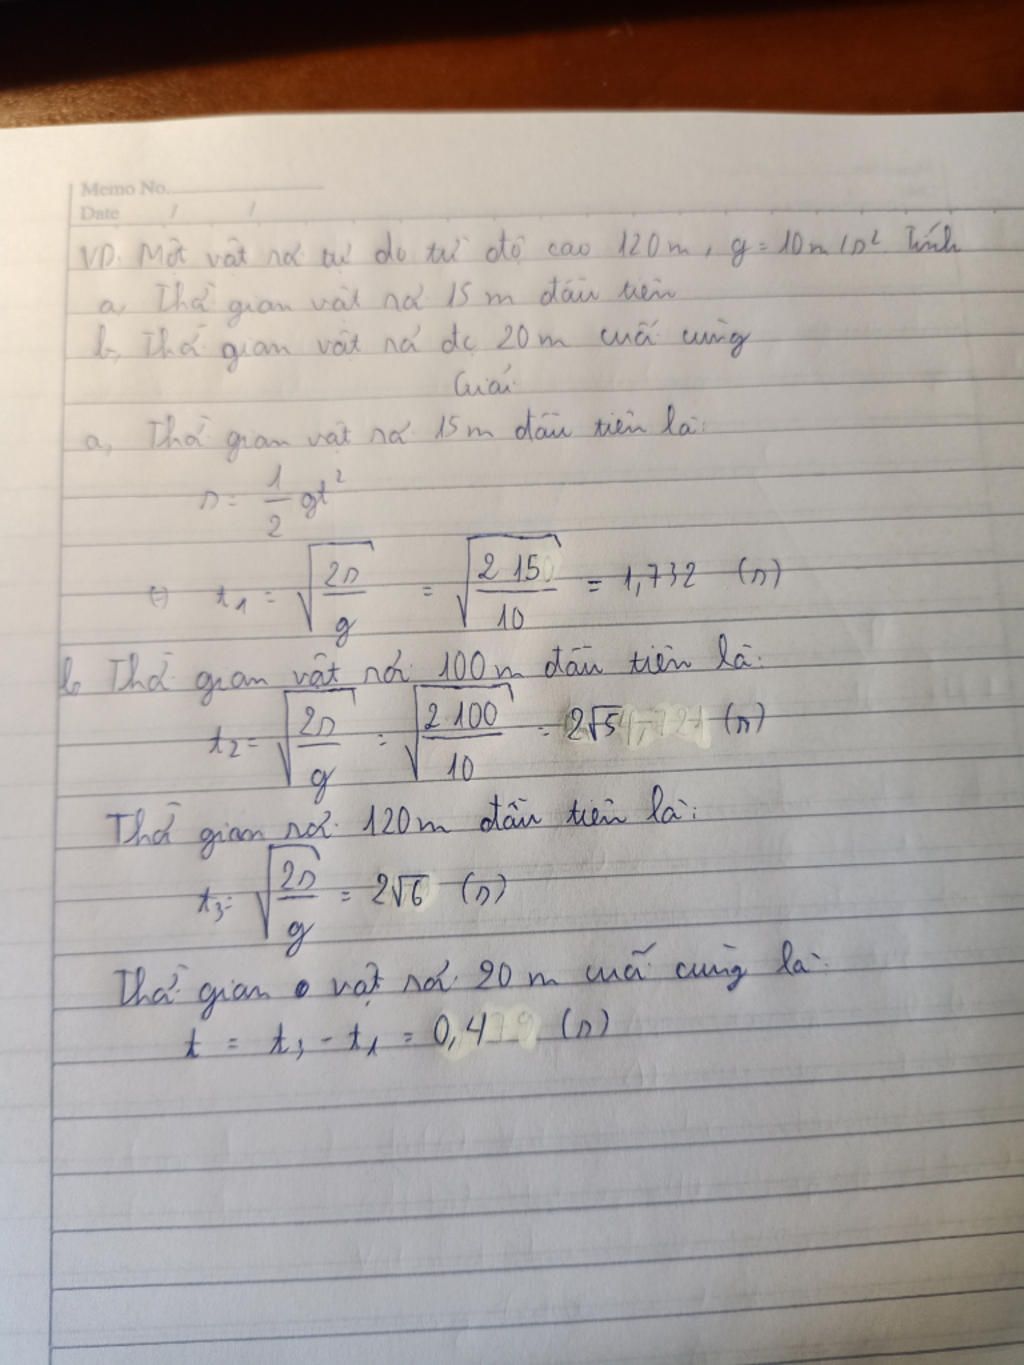 Memo No.
Date / /
VD. Một vật rơi tự do từ độ cao 120m, g = 10m/s² Tính
a, Thời gian vật rơi 15 m đầu tiên
b, Thời gian vật rơi đc 20m cuối cùng
Giải
a, Thời gian vật rơi 15m đầu tiên là:
s = 1/2 gt²
(=) t₁ = √(2s/g) = √(2.15/10) = 1,732 (s)
b, Thời gian vật rơi 100m đầu tiên là:
t₂ = √(2s/g) = √(2.100/10) = 2√5 (s)
Thời gian rơi 120m đầu tiên là:
t₃ = √(2s/g) = 2√6 (s)
Thời gian vật rơi 20m cuối cùng là:
t = t₃ - t₁ = 0,4 (s)